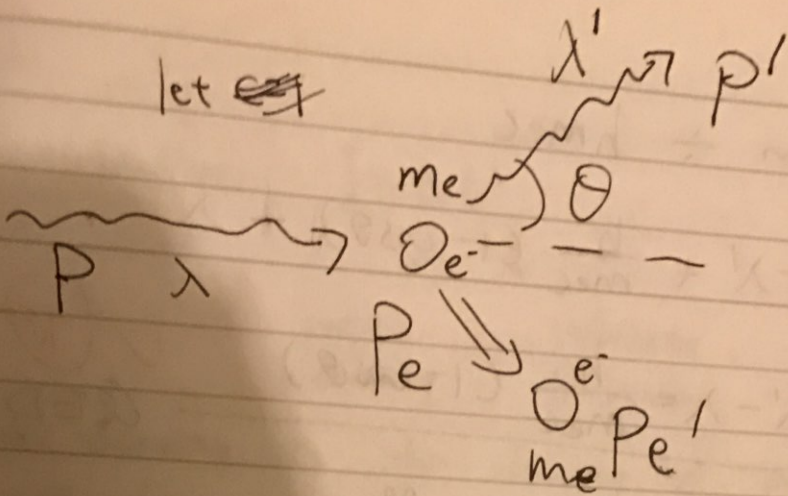 let
λ' p'
me θ
e-
P λ
Pe
e-
me Pe'